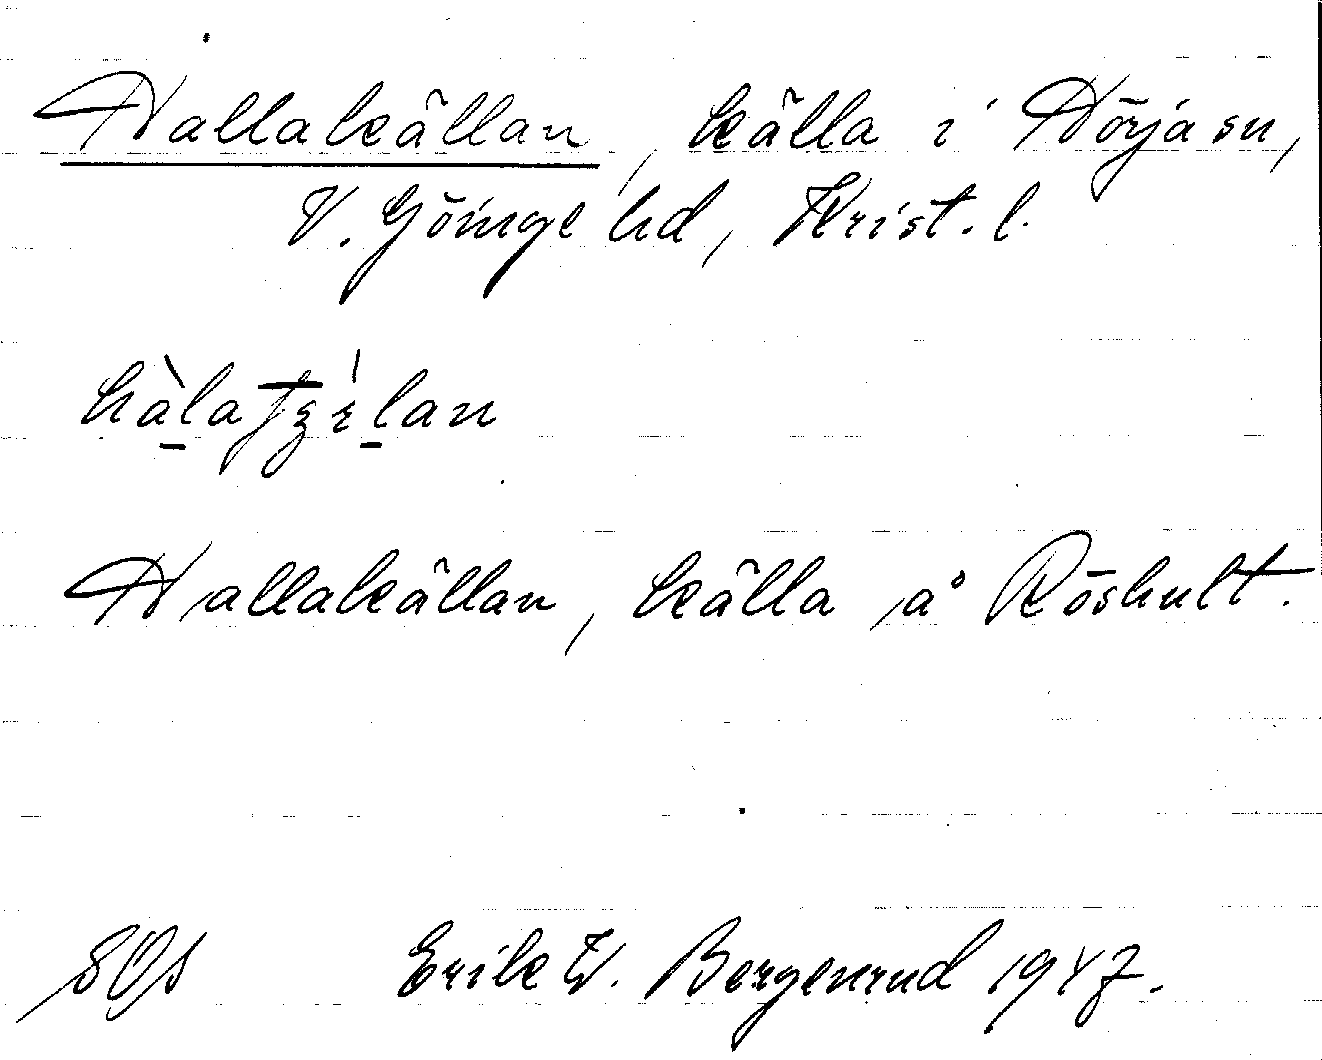 Hallakällan, källa i Hörja sn,
V. Göinge hd, Krist. l.
Hallakällan, källa å Röshult.
Erik W. Bergenrud 1947.